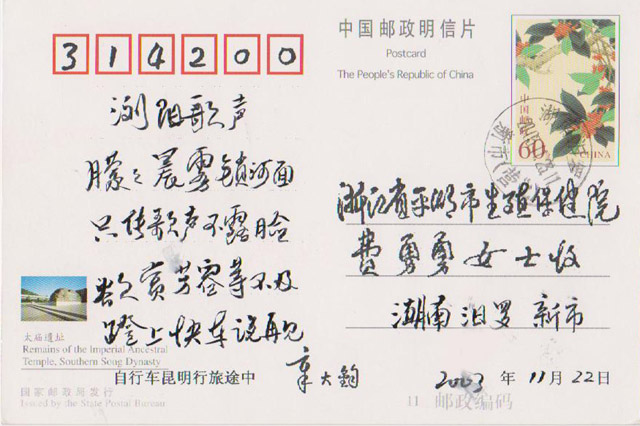 314200
中国邮政明信片
Postcard
The People's Republic of China
60
CHINA
浏阳歌声
朦々晨雾锁河面
只传歌声不露脸
欲赏芳容等不及
蹬上快车说再见
自行车昆明行旅途中 章大钧
浙江省平湖市生殖保健院
费勇勇女士收
湖南汨罗新市
2003 年 11月 22日
太庙遗址
Remains of the Imperial Ancestral
Temple, Southern Song Dynasty
国家邮政局发行
Issued by the State Postal Bureau
11 邮政编码